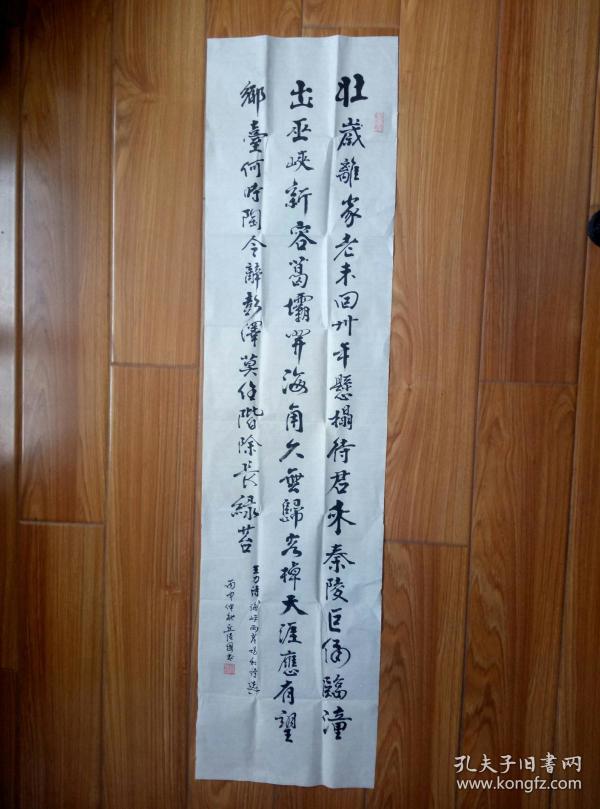 壯歲離家老未回卅年懸榻待君來秦陵巨俑臨潼
出巫峽新容葛壩開海角久無歸客棹天涯應有望
鄉臺何時陶令辭彭澤莫任階除長綠苔
王力詩 海峽兩岸唱和詩選
丙申仲秋
孔夫子旧书网
www.kongfz.com